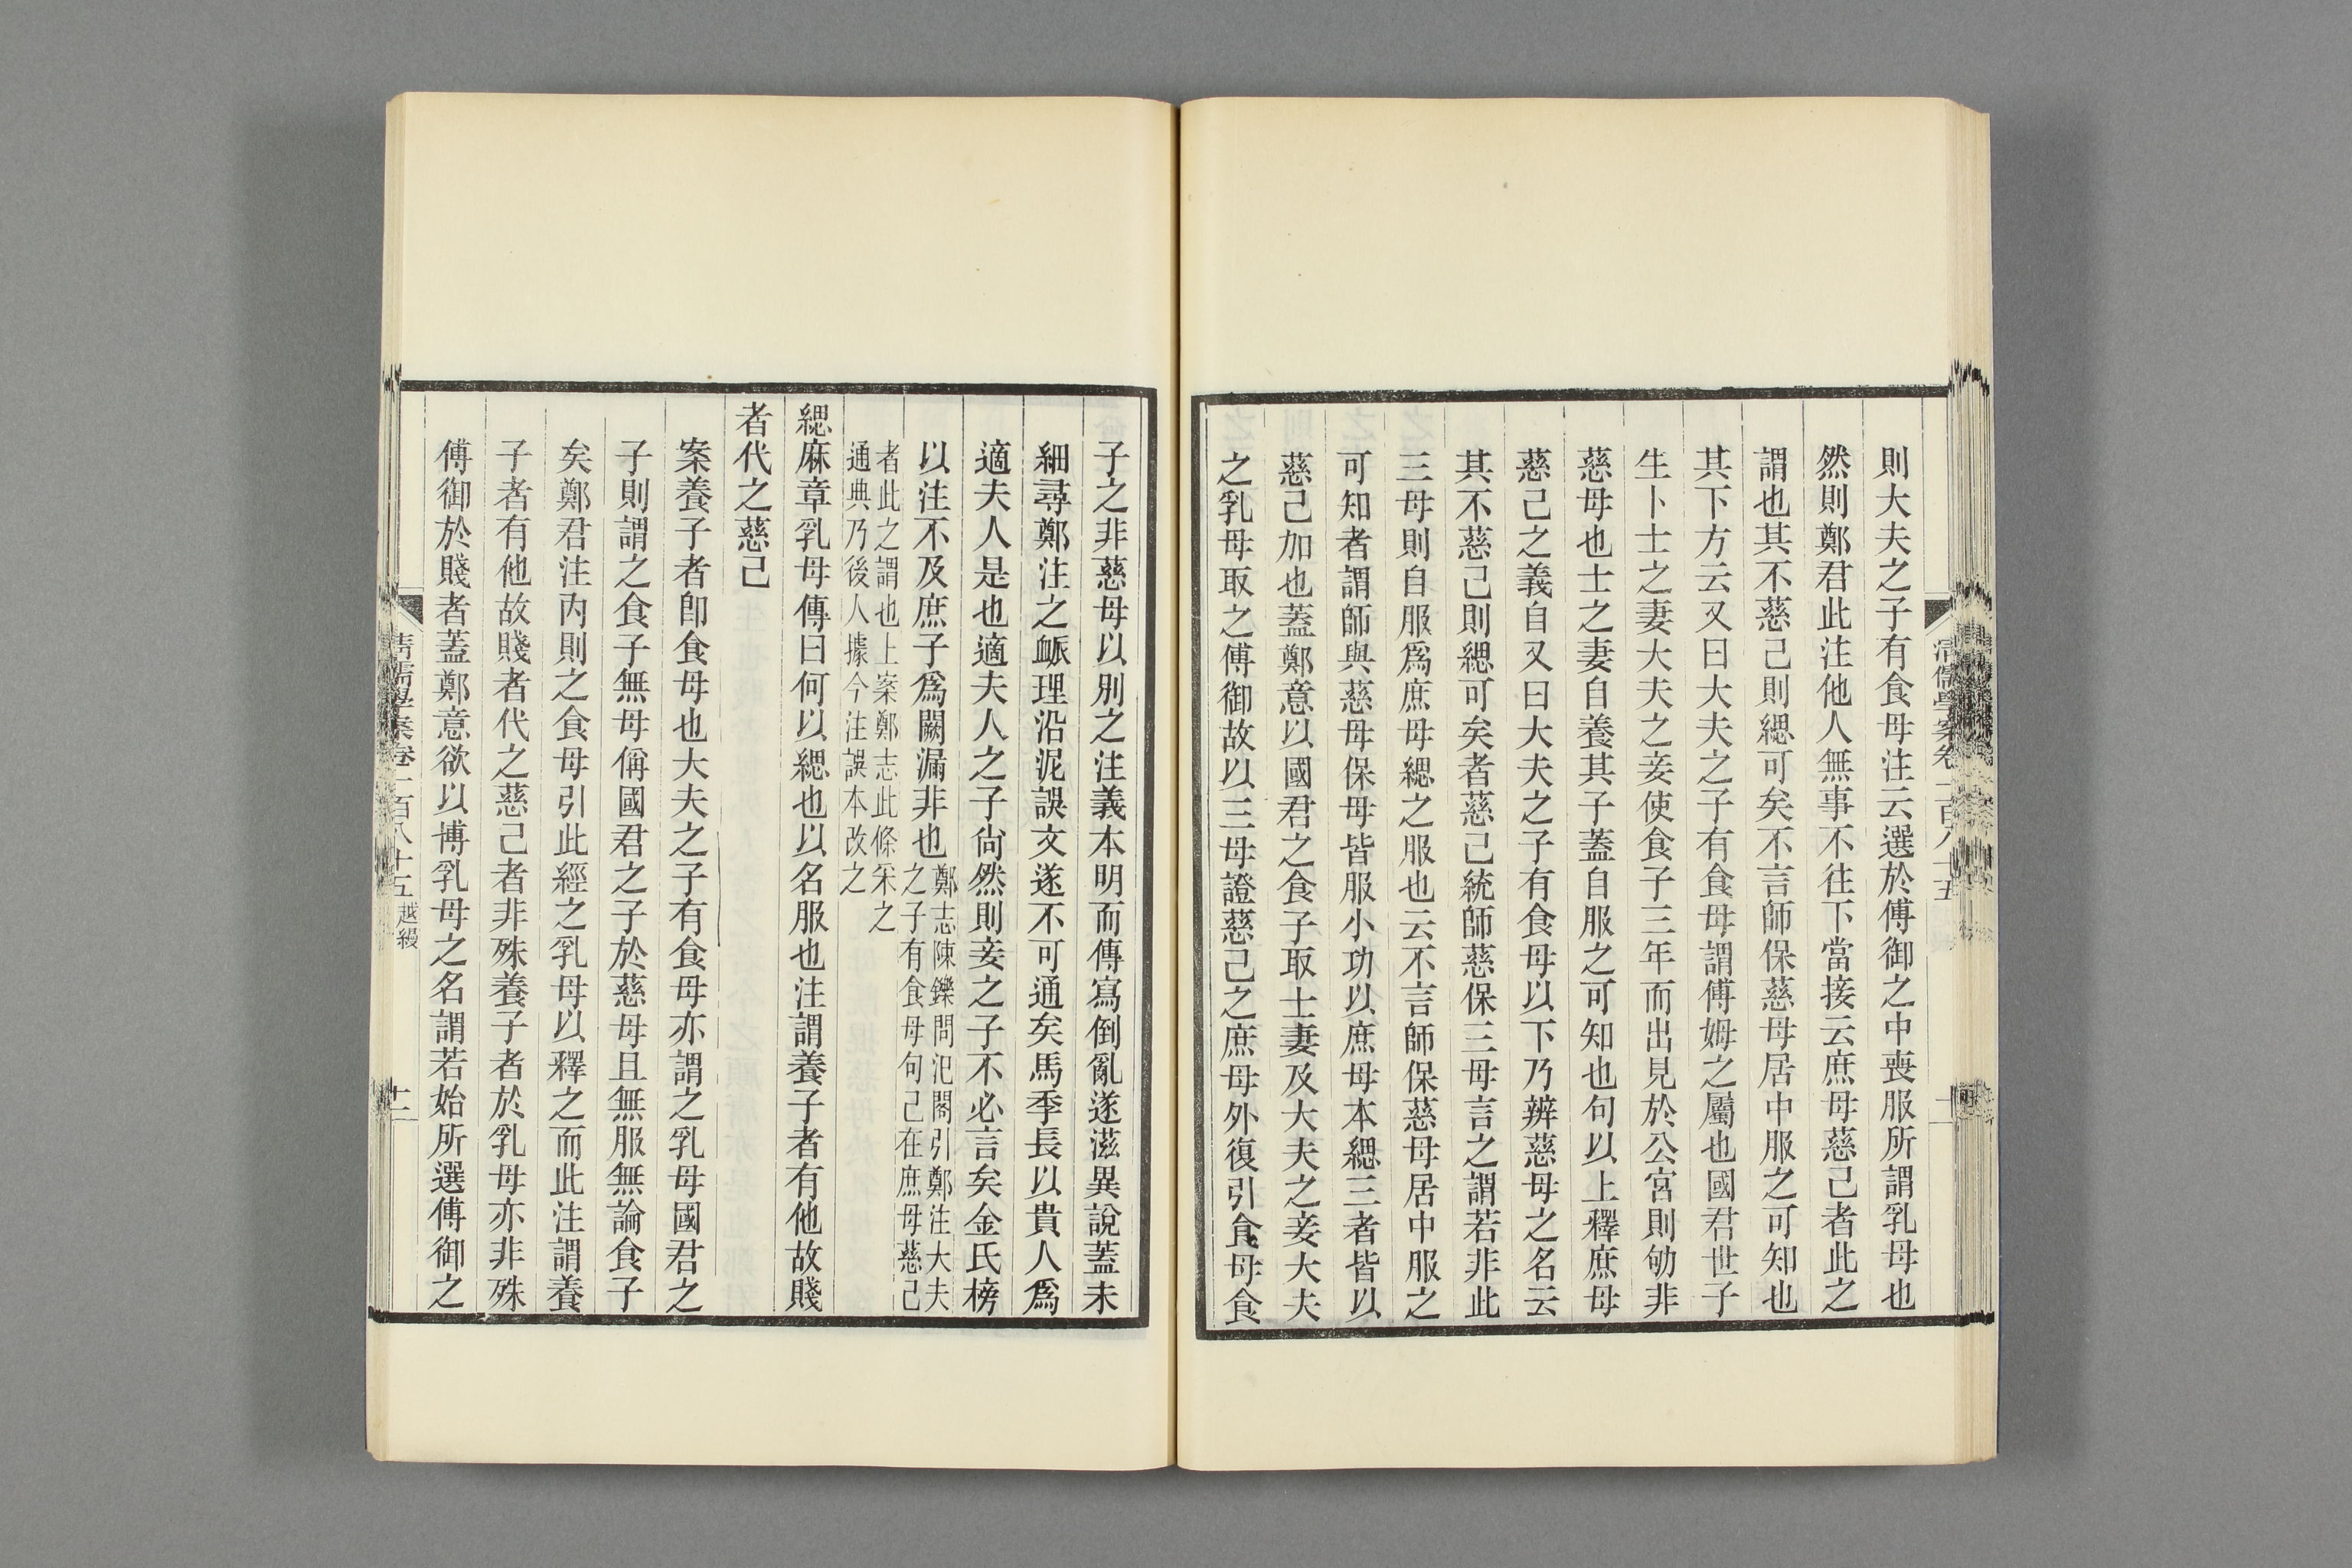 則大夫之子有食母注云選於傅御之中喪服所謂乳母也
然則鄭君此注他人無事不往下當接云庶母慈己者此之
謂也其不慈己則緦可矣不言師保慈母居中服之可知也
其下方云又曰大夫之子有食母謂傅姆之屬也國君世子
生卜士之妻大夫之妾使食子三年而出見於公宮則劬非
慈母也士之妻自養其子蓋自服之可知也句以上釋庶母
慈己之義自又曰大夫之子有食母以下乃辨慈母之名云
其不慈己則緦可矣者慈己統師慈保三母言之謂若非此
三母則自服爲庶母緦之服也云不言師保慈母居中服之
可知者謂師與慈母保母皆服小功以庶母本緦三者皆以
慈己加也蓋鄭意以國君之食子取士妻及大夫之妾大夫
之乳母取之傅御故以三母證慈己之庶母外復引食母食
子之非慈母以別之注義本明而傳寫倒亂遂滋異說蓋未
細尋鄭注之衇理沿泥誤文遂不可通矣馬季長以貴人爲
適夫人是也適夫人之子尙然則妾之子不必言矣金氏榜
以注不及庶子爲闕漏非也鄭志陳鑠問氾閣引鄭注大夫
之子有食母句已在庶母慈己
者此之謂也上案鄭志此條采之
通典乃後人據今注誤本改之
緦麻章乳母傳曰何以緦也以名服也注謂養子者有他故賤
者代之慈己
案養子者卽食母也大夫之子有食母亦謂之乳母國君之
子則謂之食子無母偁國君之子於慈母且無服無論食子
矣鄭君注內則之食母引此經之乳母以釋之而此注謂養
子者有他故賤者代之慈己者非殊養子者於乳母亦非殊
傅御於賤者蓋鄭意欲以博乳母之名謂若始所選傅御之
清儒學案卷一百八十五 越縵
十二
清儒學案卷一百八十五